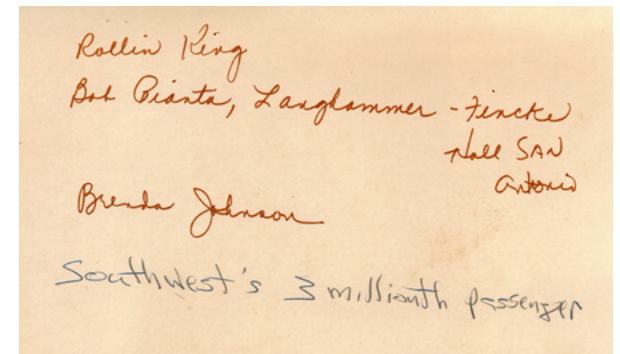 Rollin King
Bob Pianta, Langhammer - Fincke
Hall SAN
Antonio
Brenda Johnson
Southwest's 3 millionth passenger